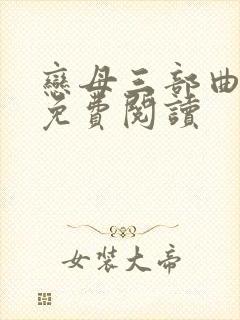 戀母三部曲
免費閱讀
女裝大帝